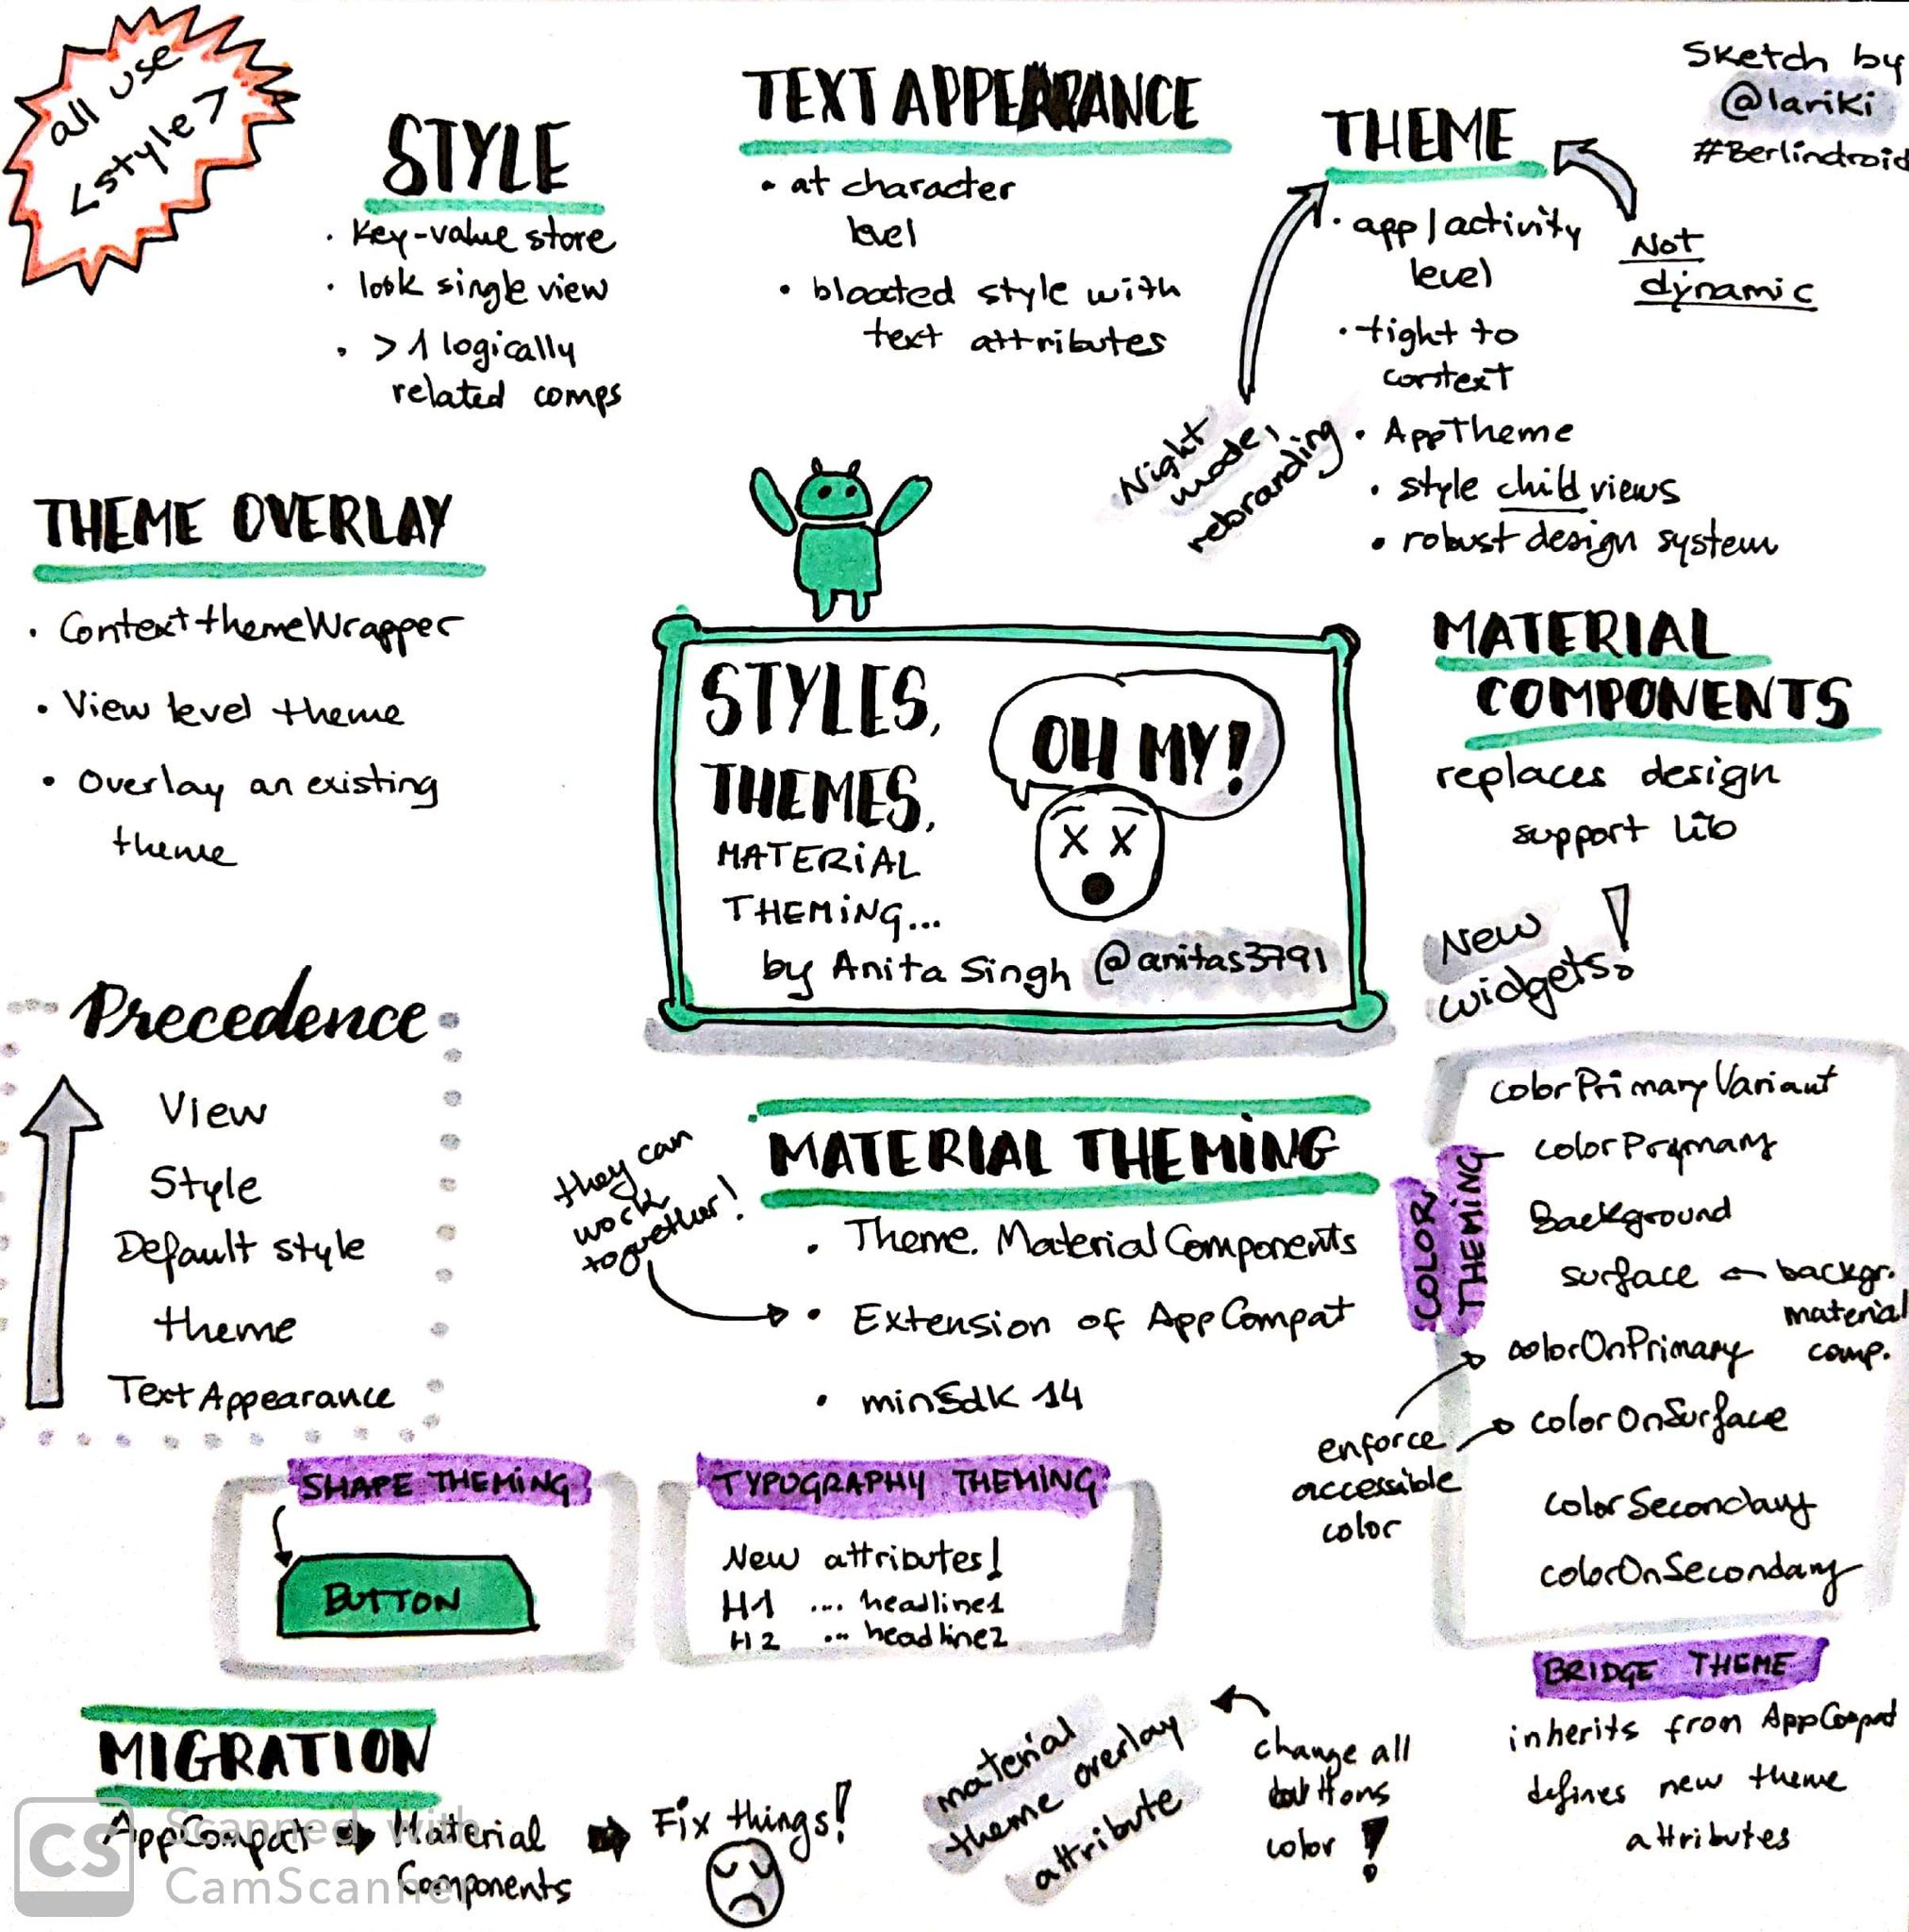 all use
<style>
STYLE
. Key-value store
. look single view
. >1 logically
related comps
TEXT APPEARANCE
. at character
level
. bloated style with
text attributes
THEME
. app/activity
level
. tight to
context
. AppTheme
. style child views
. robust design system
Not
dynamic
Night
mode,
rebranding
Sketch by
@lariki
#Berlindroid
THEME OVERLAY
. ContextthemeWrapper
. View level theme
. Overlay an existing
theme
STYLES,
THEMES,
MATERIAL
THEMING...
by Anita Singh @anitas3791
OH MY!
MATERIAL
COMPONENTS
replaces design
support lib
New
widgets!
Precedence
View
Style
Default style
theme
Text Appearance
MATERIAL THEMING
. Theme. MaterialComponents
. Extension of AppCompat
. minSdk 14
they can
work
together!
COLOR
THEMING
colorPrimaryVariant
colorPrymary
Background
surface ← backgr.
material
comp.
colorOnPrimary
colorOnSurface
colorSecondary
colorOnSecondary
enforce
accessible
color
SHAPE THEMING
BUTTON
TYPOGRAPHY THEMING
New attributes!
H1 .... headline1
H2 ... headline2
BRIDGE THEME
inherits from AppCompat
defines new theme
attributes
MIGRATION
AppCompat → Material
Components
→ Fix things!
material
theme overlay
attribute
change all
buttons
color!
CS
Scanned with
CamScanner